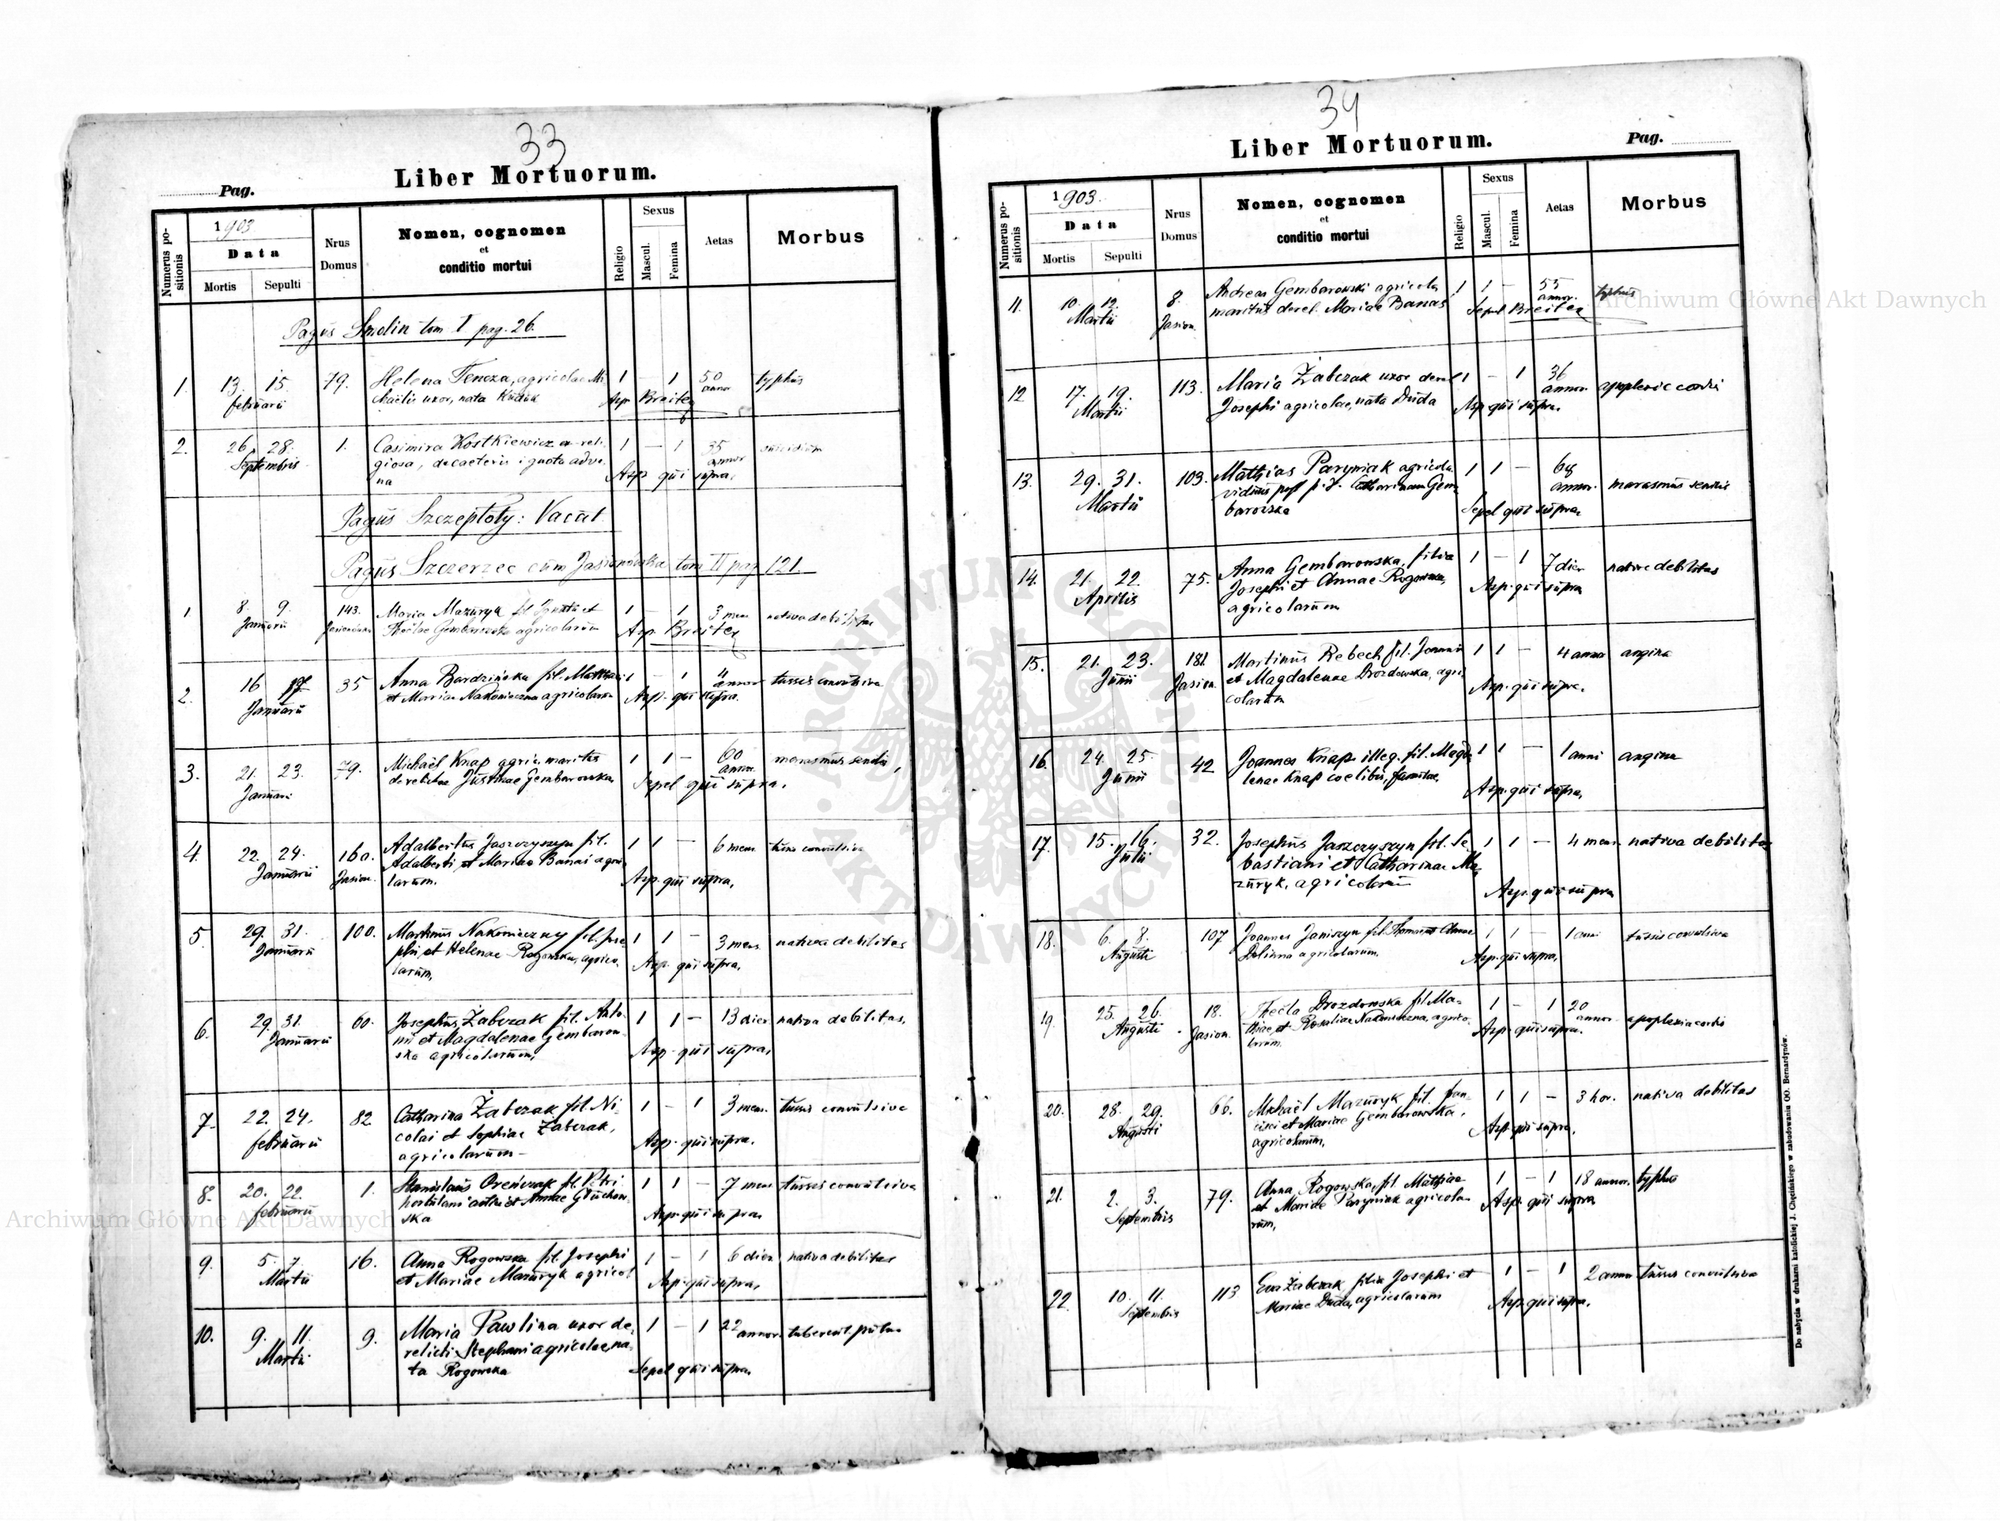 33
Liber Mortuorum.
Pag.
Numerus positionis
1903
Data
Mortis
Sepulti
Nrus Domus
Nomen, cognomen
et
conditio mortui
Religio
Sexus
Mascul.
Femina
Aetas
Morbus
Pagus Smolin tom I pag. 26.
1. 13. 15. 79. Helena Tencza, agricolae Mi- 1 — 1 50 typhus
februarii uxor, nata Asp Breiter anno
2. 26. 28. 1. Casimira Kostkiewicz ex-reli- 1 — 1 35 suicidium
Septembris giosa, de caeteris ignota adve- Asp qui supra, annor
na
Pagus Szczepłoty: Vacat.
Pagus Szczerzec cum Jasionówka tom II pag 121.
1 8. 9. 143. Maria Mazuryk fil. et 1 — 1 3 men nativa debilitas
Januarii Theclae Gembarowska agricolarum Asp. Breiter
2. 16 35 Anna Bardzińska fil. 1 — 1 4 tussis convulsiva
Januarii et Mariae Nakonieczna agricolarum Asp. qui supra. annor
3. 21. 23. 79. Michaël Knap agric. maritus 1 1 — 60 marasmus senilis
Januarii derelictae Justinae Gembarowska Sepel qui supra. annor.
4. 22. 24. 160. Adalbertus Jaszczyszyn fil. 1 1 — 6 mens tussis convulsiva
Januarii Jasion. Adalberti et Mariae Banas agrico- Asp. qui supra,
larum.
5. 29. 31. 100. Martinus Nakonieczny fil. Jose- 1 1 — 3 mens. nativa debilitas
Januarii phi et Helenae Rogowska, agrico- Asp. qui supra,
larum,
6. 29. 31. 60. Josephus Żabczak fil. Anto- 1 1 — 13 dier nativa debilitas,
Januarii nii et Magdalenae Gembarow- Asp. qui supra,
ska agricolarum,
7. 22. 24. 82 Catharina Żabczak fil. Ni- 1 — 1 3 mens. tussis convulsiva
februarii colai et Sophiae Żabczak, Asp. qui supra.
agricolarum
8. 20. 22. 1. Stanislaus fil. Petri 1 1 — 7 mens tussis convulsiva
februarii hortulani et Annae Głuchow- Asp. qui supra
ska
9. 5. 7. 16. Anna Rogowska fil. Josephi 1 — 1 6 dier nativa debilitas
Martii et Mariae Mazuryk agricol Asp. qui supra,
10. 9. 11. 9. Maria Pawlina uxor de- 1 — 1 22 annor. tubercul. pulm
Martii relicti Stephani agricolae na- Sepel qui supra.
ta Rogowska
34
Liber Mortuorum.
Pag.
Numerus positionis
1903.
Data
Mortis
Sepulti
Nrus Domus
Nomen, cognomen
et
conditio mortui
Religio
Sexus
Mascul.
Femina
Aetas
Morbus
11. 10. 12. 8. Andreas Gembarowski agricola 1 1 — 55 typhus
Martii Jasion. maritus derel. Mariae Banas Sepul Breiter annor.
12 17. 19. 113. Maria Żabczak uxor derel 1 — 1 36 apoplexie cordis
Martii Josephi agricolae, nata Duda Asp. qui supra. annor.
13. 29. 31. 103. Mathias Paryniak agricola 1 1 — 68 marasmus senilis
Martii viduus post p. d. Catharinam Gem- Sepel qui supra annor.
barowska
14. 21. 22. 75. Anna Gembarowska, filia 1 — 1 7 dier native debilitas
Aprilis Josephi et Annae Rogowska, Asp. qui supra
agricolarum
15. 21. 23. 181 Martinus Rebech fil. Joannis 1 1 — 4 anno angina
Junii Jasion et Magdalenae Drozdowska, agri- Asp. qui supra.
colarum
16. 24. 25. 42 Joannes Knap illeg. fil. Magda- 1 1 — 1 anni angina
Junii lenae Knap coelibis, famulae, Asp. qui supra,
17. 15. 16. 32. Josephus Jaszczyszyn fil. Se- 1 1 — 4 mens. nativa debilitas
Julii bastiani et Catharinae Ma- Asp. qui supra
zuryk, agricolarum
18. 6. 8. 107 Joannes Janiszyn fil. Thomae et Annae 1 1 — 1 anni tussis convulsiva
Augusti Dolinna agricolarum. Asp. qui supra,
19. 25. 26. 18. Thecla Drozdowska fil. Ma- 1 — 1 20 apoplexia cordis
Augusti Jasion thiae et Rosaliae Nakonieczna, agrico- Asp. qui supra. annor.
larum.
20. 28. 29. 66. Michaël Mazuryk fil. Fran- 1 1 — 3 hor. nativa debilitas
Augusti cisci et Mariae Gembarowska, Asp. qui supra,
agricolarum,
21. 2. 3. 79. Anna Rogowska, fil. Mathiae 1 — 1 18 annor. typhus
Septembris et Mariae Paryniak agricola- Asp. qui supra
rum,
22. 10. 11. 113 Eva Żabczak filia Josephi et 1 — 1 2 anno tussis convulsiva
Septembris Mariae Duda, agricolarum Asp. qui supra,
Do nabycia w drukarni katolickiej J. Chęcińskiego w zabudowaniu OO. Bernardynów.
Archiwum Główne Akt Dawnych
Archiwum Główne Akt Dawnych
ARCHIWUM GŁÓWNE
AKT DAWNYCH